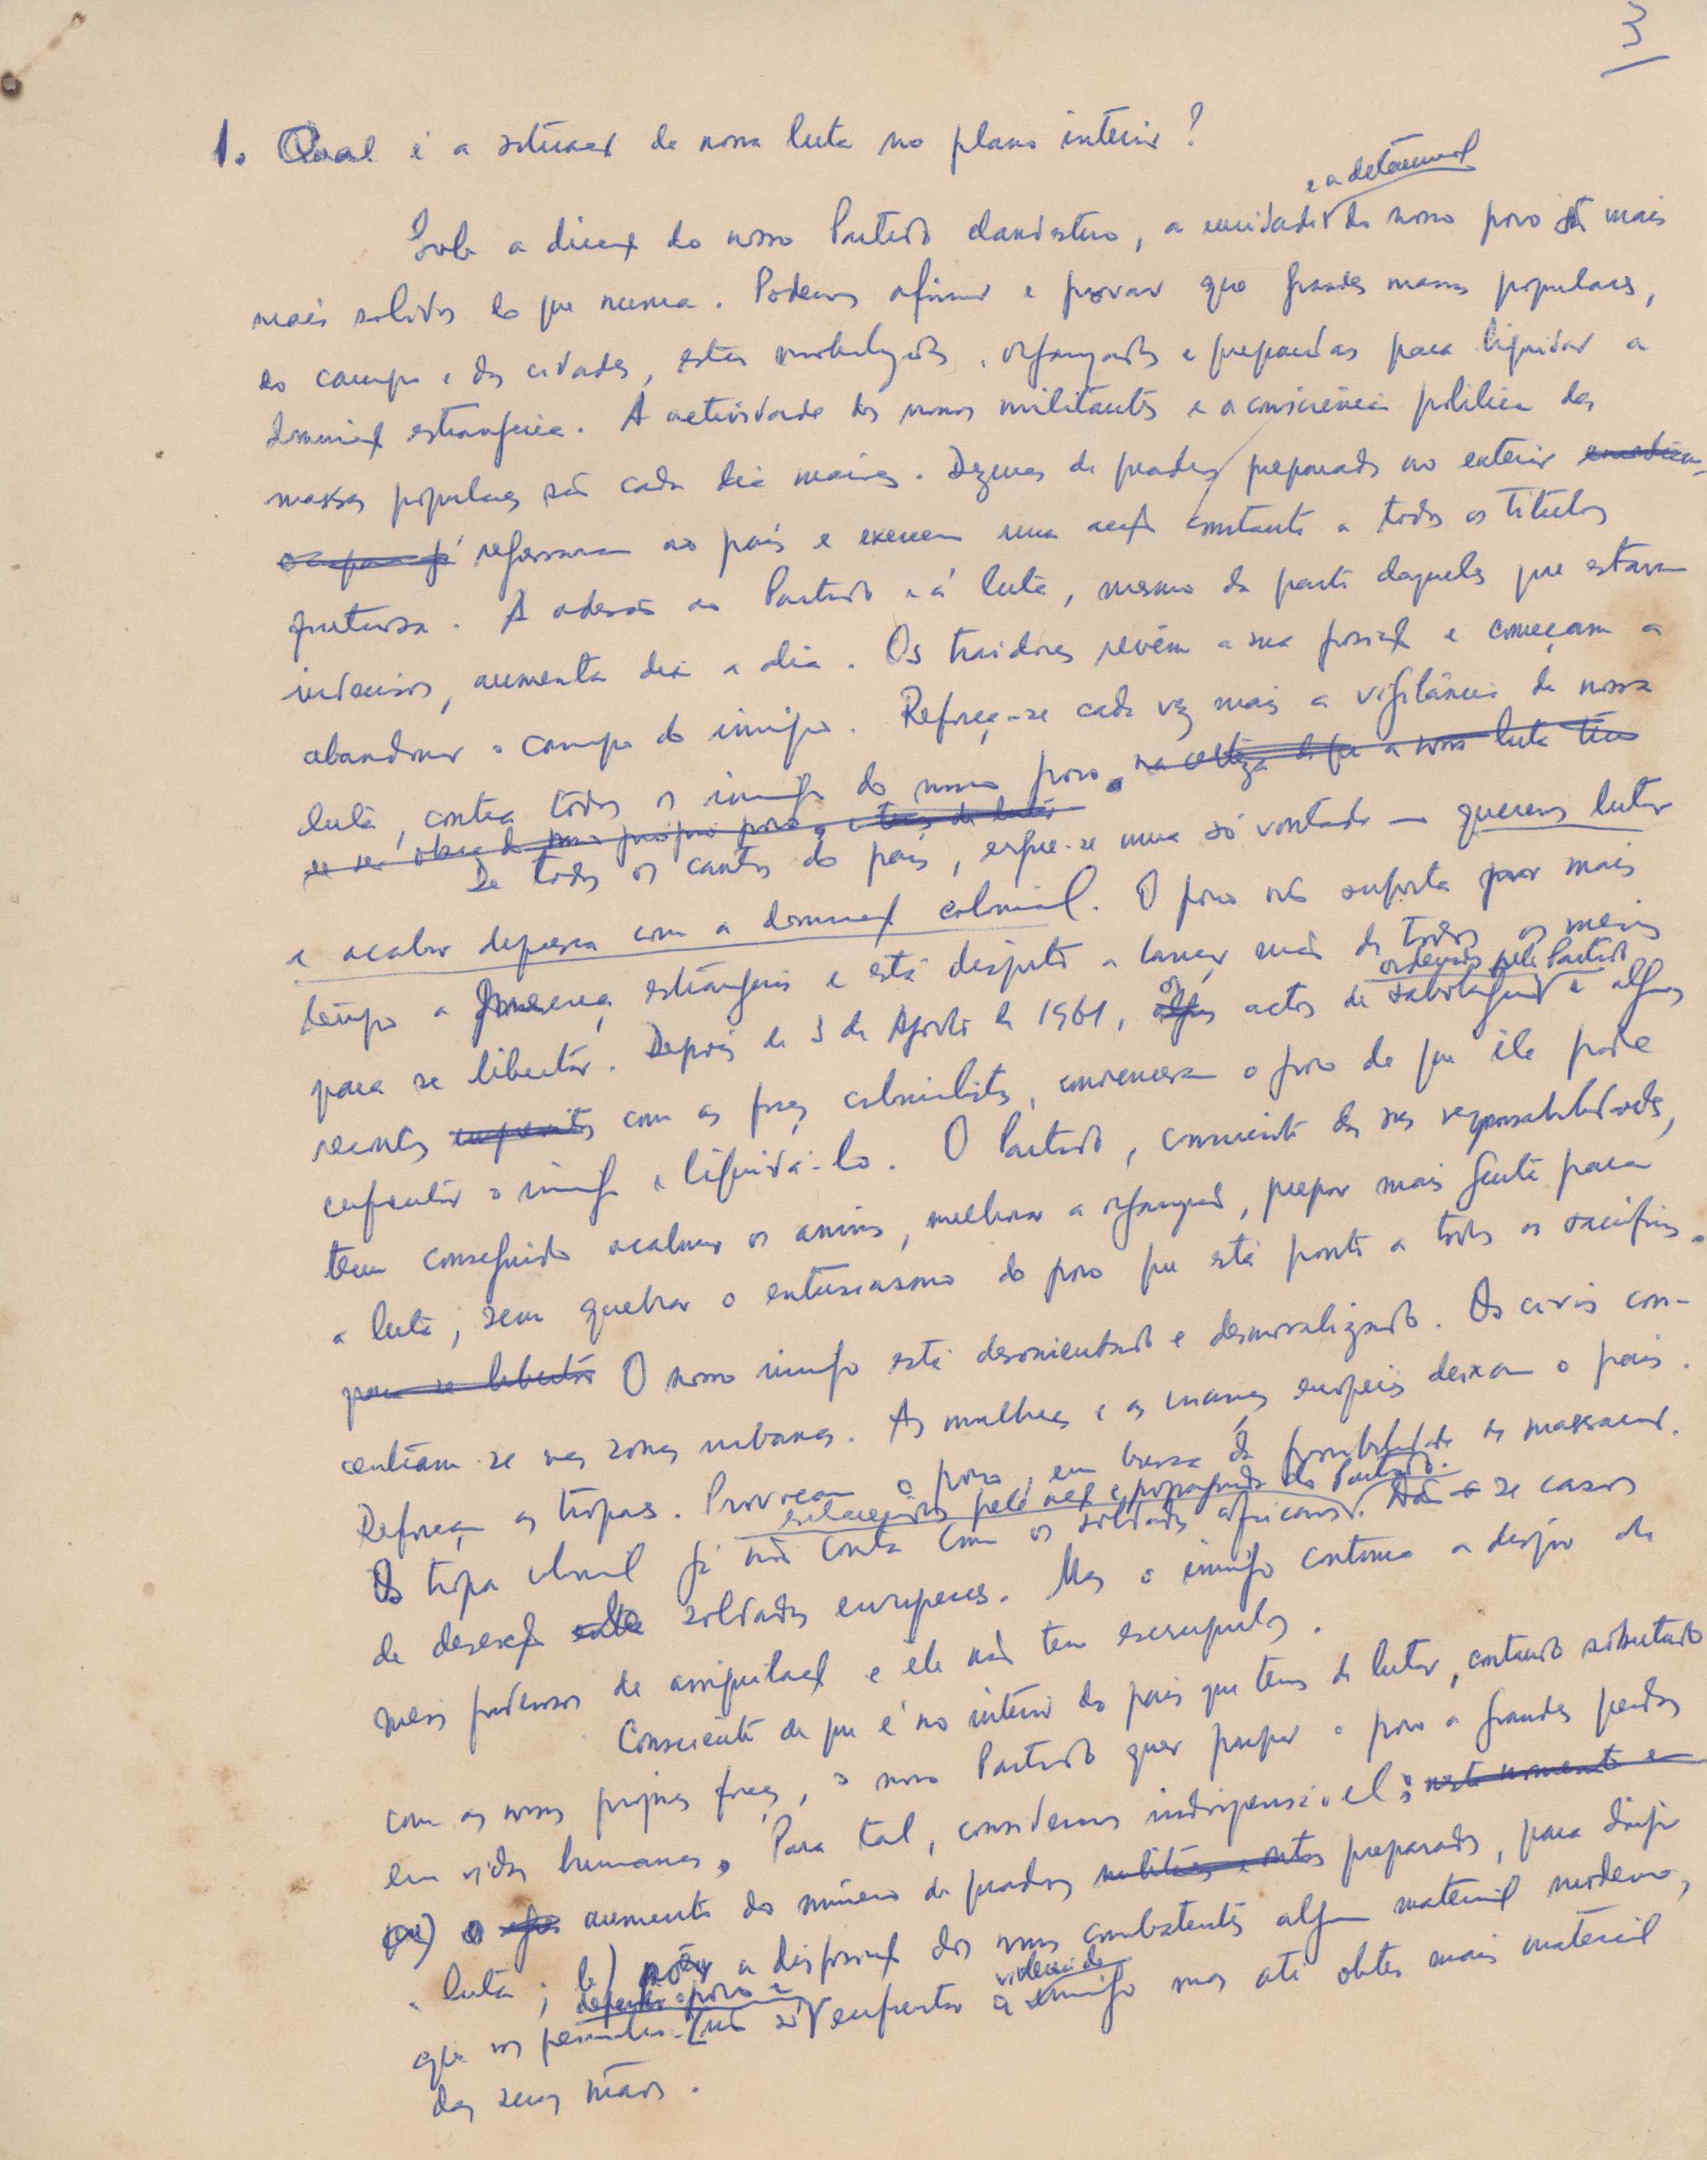 3
1. Qual é a situação da nossa luta no plano interior?
e a determinação
Sob a direcção do nosso Partido clandestino, a unidade do nosso povo são mais
mais solidos do que nunca. Podemos afirmar e provar que grandes massas populares,
do campo e das cidades, estão mobilizadas, organizadas e preparadas para liquidar a
dominação estrangeira. A actividade dos nossos militantes e a consciência politica das
massas populares são cada dia maiores. Dezenas de quadros preparados no exterior
já regressaram ao país e exercem uma acção constante a todos os titulos
frutuosa. A adesão ao Partido e á luta, mesmo da parte daqueles que estavam
indecisos, aumenta dia a dia. Os traidores revêm a sua posição e começam a
abandonar o campo do inimigo. Reforça-se cada vez mais a vigilância da nossa
luta, contra todos os inimigos do nosso povo, na certeza de que a nossa luta tem
de ser obra do nosso próprio povo e
De todos os cantos do país, ergue-se uma só vontade — queremos lutar
e acabar depressa com a dominação colonial. O povo não suporta por mais
tempo a presença estrangeira e está disposto a lançar mão de todos os meios
ordenados pelo Partido
para se libertar. Depois de 3 de Agosto de 1961, os actos de sabotagem e alguns
recontros com as forças colonialistas, convenceram o povo de que ele pode
enfrentar o inimigo e liquidá-lo. O Partido, consciente das suas responsabilidades,
tem conseguido acalmar os animos, melhorar a organização, preparar mais gente para
a luta, sem quebrar o entusiasmo do povo que está pronto a todos os sacrifícios.
para se libertar O nosso inimigo está desorientado e desmoralizado. Os civis con-
centram-se nas zonas urbanas. As mulheres e as crianças europeias deixam o país.
Reforçam as tropas. Provocam o povo, em busca da possibilidade de massacrar.
esclarecidos pela acção e propaganda do Partido.
Os tropa colonial já não conta com os soldados africanos. Dão-se casos
de deserção entre soldados europeus. Mas o inimigo continua a dispôr de
meios poderosos de aniquilação e ele não tem escrupulos.
Consciente de que é no interior do país que temos de lutar, contando sobretudo
com as nossas próprias forças, o nosso Partido quer poupar o povo a grandes perdas
em vidas humanas. Para tal, consideramos indispensável: neste momento
a) o aumento do número de quadros militares preparados, para dirigir
a luta; b) pôr a disposição dos nossos combatentes algum material moderno,
defender o povo e
violencia do
que nos permita não só enfrentar a inimigo mas até obter mais material
das suas mãos.